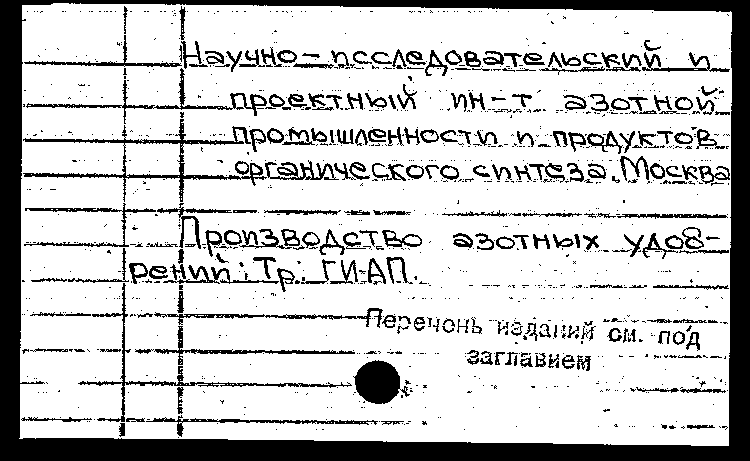 Научно-исследовательский и
проектный ин-т азотной
промышленности и продуктов
органического синтеза. Москва
Производство азотных удоб-
рений: Тр. ГИАП.
Перечень изданий см. под
заглавием